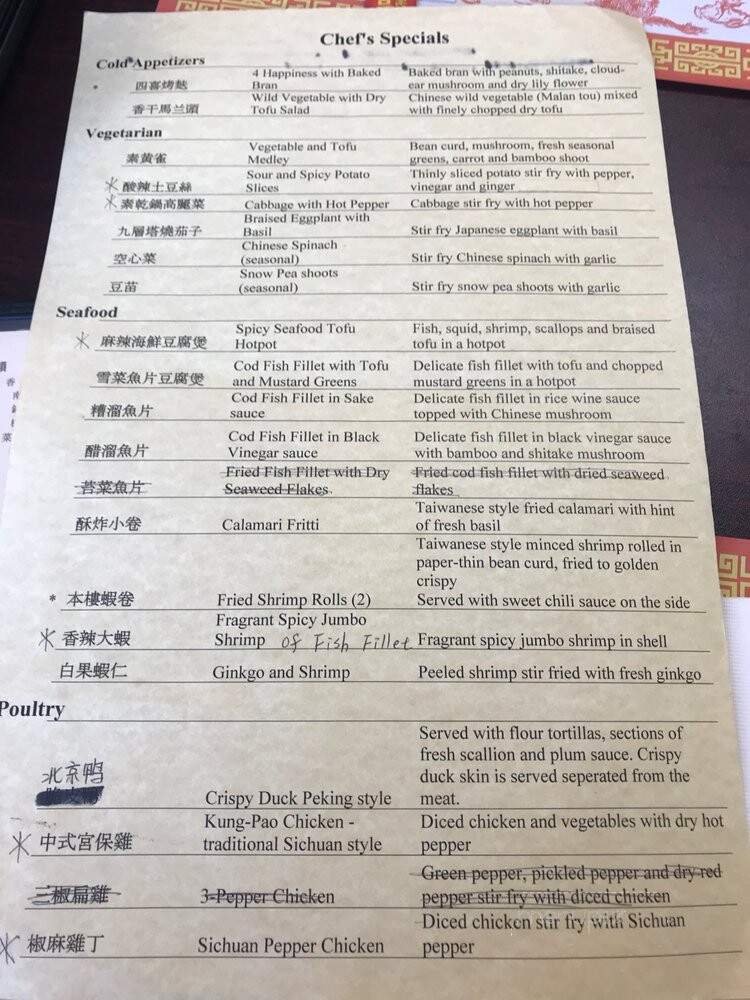 Chef's Specials
Cold Appetizers
四喜烤麩 4 Happiness with Baked Bran Baked bran with peanuts, shitake, cloud-
ear mushroom and dry lily flower
香干馬兰頭 Wild Vegetable with Dry Tofu Salad Chinese wild vegetable (Malan tou) mixed
with finely chopped dry tofu
Vegetarian
素黃雀 Vegetable and Tofu Medley Bean curd, mushroom, fresh seasonal
greens, carrot and bamboo shoot
* 酸辣土豆絲 Sour and Spicy Potato Slices Thinly sliced potato stir fry with pepper,
vinegar and ginger
* 素乾鍋高麗菜 Cabbage with Hot Pepper Cabbage stir fry with hot pepper
九層塔燒茄子 Braised Eggplant with Basil Stir fry Japanese eggplant with basil
空心菜 Chinese Spinach (seasonal) Stir fry Chinese spinach with garlic
豆苗 Snow Pea shoots (seasonal) Stir fry snow pea shoots with garlic
Seafood
* 麻辣海鮮豆腐煲 Spicy Seafood Tofu Hotpot Fish, squid, shrimp, scallops and braised
tofu in a hotpot
雪菜魚片豆腐煲 Cod Fish Fillet with Tofu and Mustard Greens Delicate fish fillet with tofu and chopped
mustard greens in a hotpot
糟溜魚片 Cod Fish Fillet in Sake sauce Delicate fish fillet in rice wine sauce
topped with Chinese mushroom
醋溜魚片 Cod Fish Fillet in Black Vinegar sauce Delicate fish fillet in black vinegar sauce
with bamboo and shitake mushroom
苔菜魚片 Fried Fish Fillet with Dry Seaweed Flakes Fried cod fish fillet with dried seaweed
flakes
酥炸小卷 Calamari Fritti Taiwanese style fried calamari with hint
of fresh basil
Taiwanese style minced shrimp rolled in
paper-thin bean curd, fried to golden
crispy
* 本樓蝦卷 Fried Shrimp Rolls (2) Served with sweet chili sauce on the side
* 香辣大蝦 Fragrant Spicy Jumbo Shrimp of Fish Fillet Fragrant spicy jumbo shrimp in shell
白果蝦仁 Ginkgo and Shrimp Peeled shrimp stir fried with fresh ginkgo
Poultry
北京鸭 Crispy Duck Peking style Served with flour tortillas, sections of
fresh scallion and plum sauce. Crispy
duck skin is served seperated from the
meat.
* 中式宮保雞 Kung-Pao Chicken - traditional Sichuan style Diced chicken and vegetables with dry hot
pepper
三椒扁雞 3-Pepper Chicken Green pepper, pickled pepper and dry red
pepper stir fry with diced chicken
* 椒麻雞丁 Sichuan Pepper Chicken Diced chicken stir fry with Sichuan
pepper